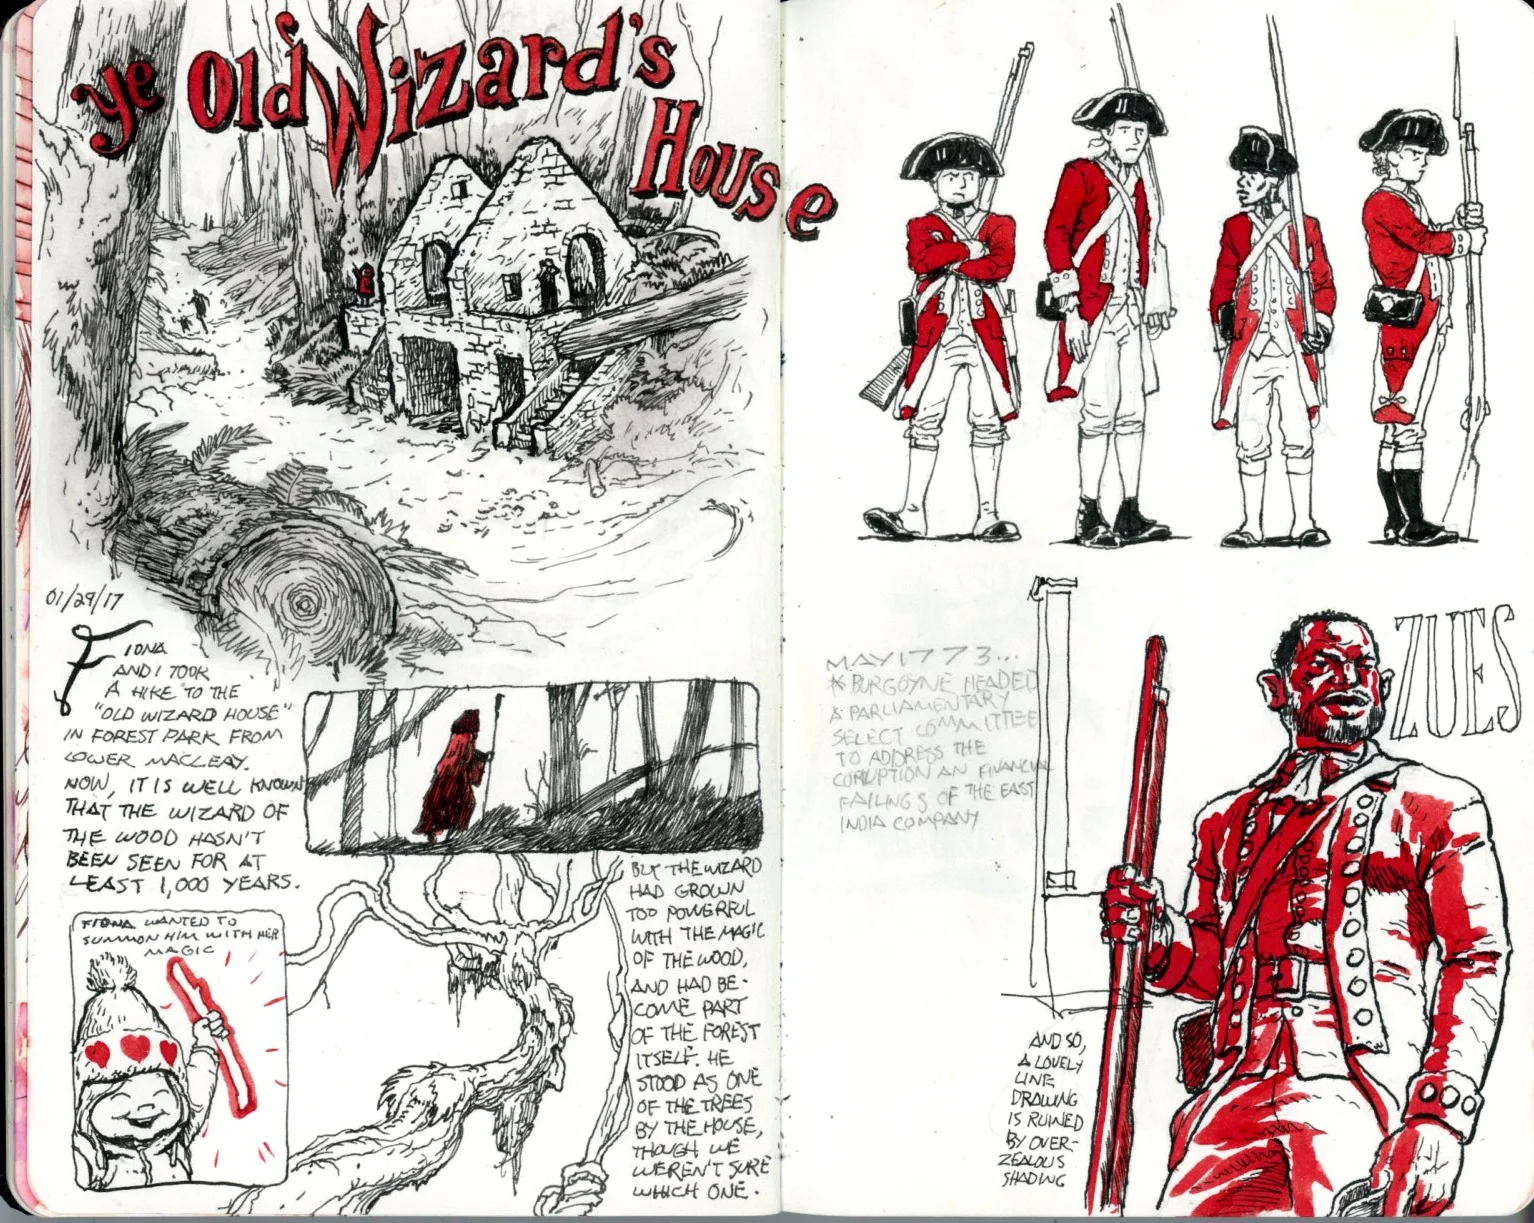 ye Old Wizard's
House
01/29/17
FIONA
AND I TOOK
A HIKE TO THE
"OLD WIZARD HOUSE"
IN FOREST PARK FROM
LOWER MACLEAY.
NOW, IT IS WELL KNOWN
THAT THE WIZARD OF
THE WOOD HASN'T
BEEN SEEN FOR AT
LEAST 1,000 YEARS.
FIONA WANTED TO
SUMMON HIM WITH HER
MAGIC
BUT THE WIZARD
HAD GROWN
TOO POWERFUL
WITH THE MAGIC
OF THE WOOD,
AND HAD BE-
COME PART
OF THE FOREST
ITSELF. HE
STOOD AS ONE
OF THE TREES
BY THE HOUSE,
THOUGH WE
WEREN'T SURE
WHICH ONE.
MAY 1773...
* BURGOYNE HEADED
A PARLIAMENTARY
SELECT COMMITTEE
TO ADDRESS THE
CORUPTION AN FINANCIAL
FAILINGS OF THE EAST
INDIA COMPANY
ZUES
AND SO,
A LOVELY
LINE
DRAWING
IS RUINED
BY OVER-
ZEALOUS
SHADING